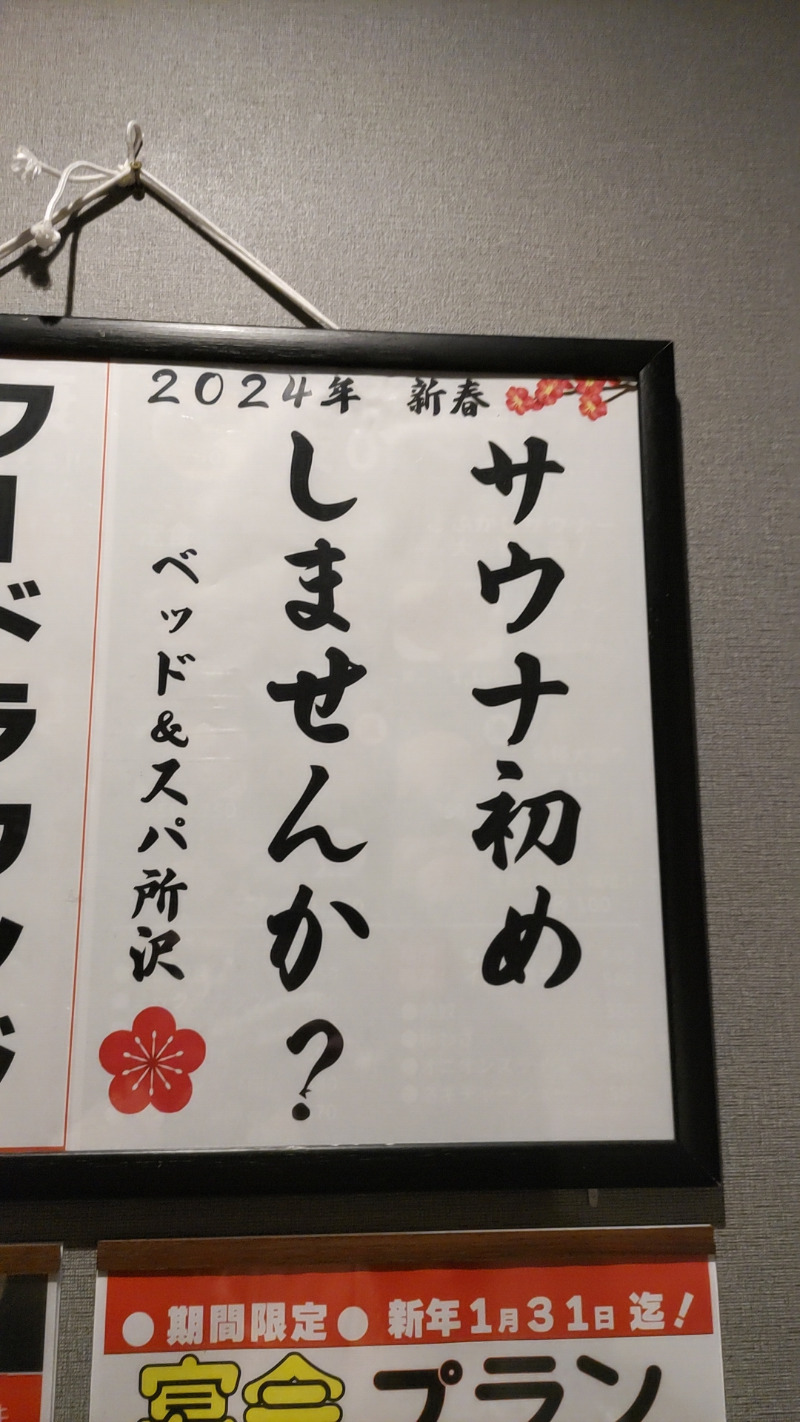 2024年 新春
サウナ初め
しませんか?
ベッド&スパ所沢
●期間限定● 新年1月31日迄!
宴会プラン